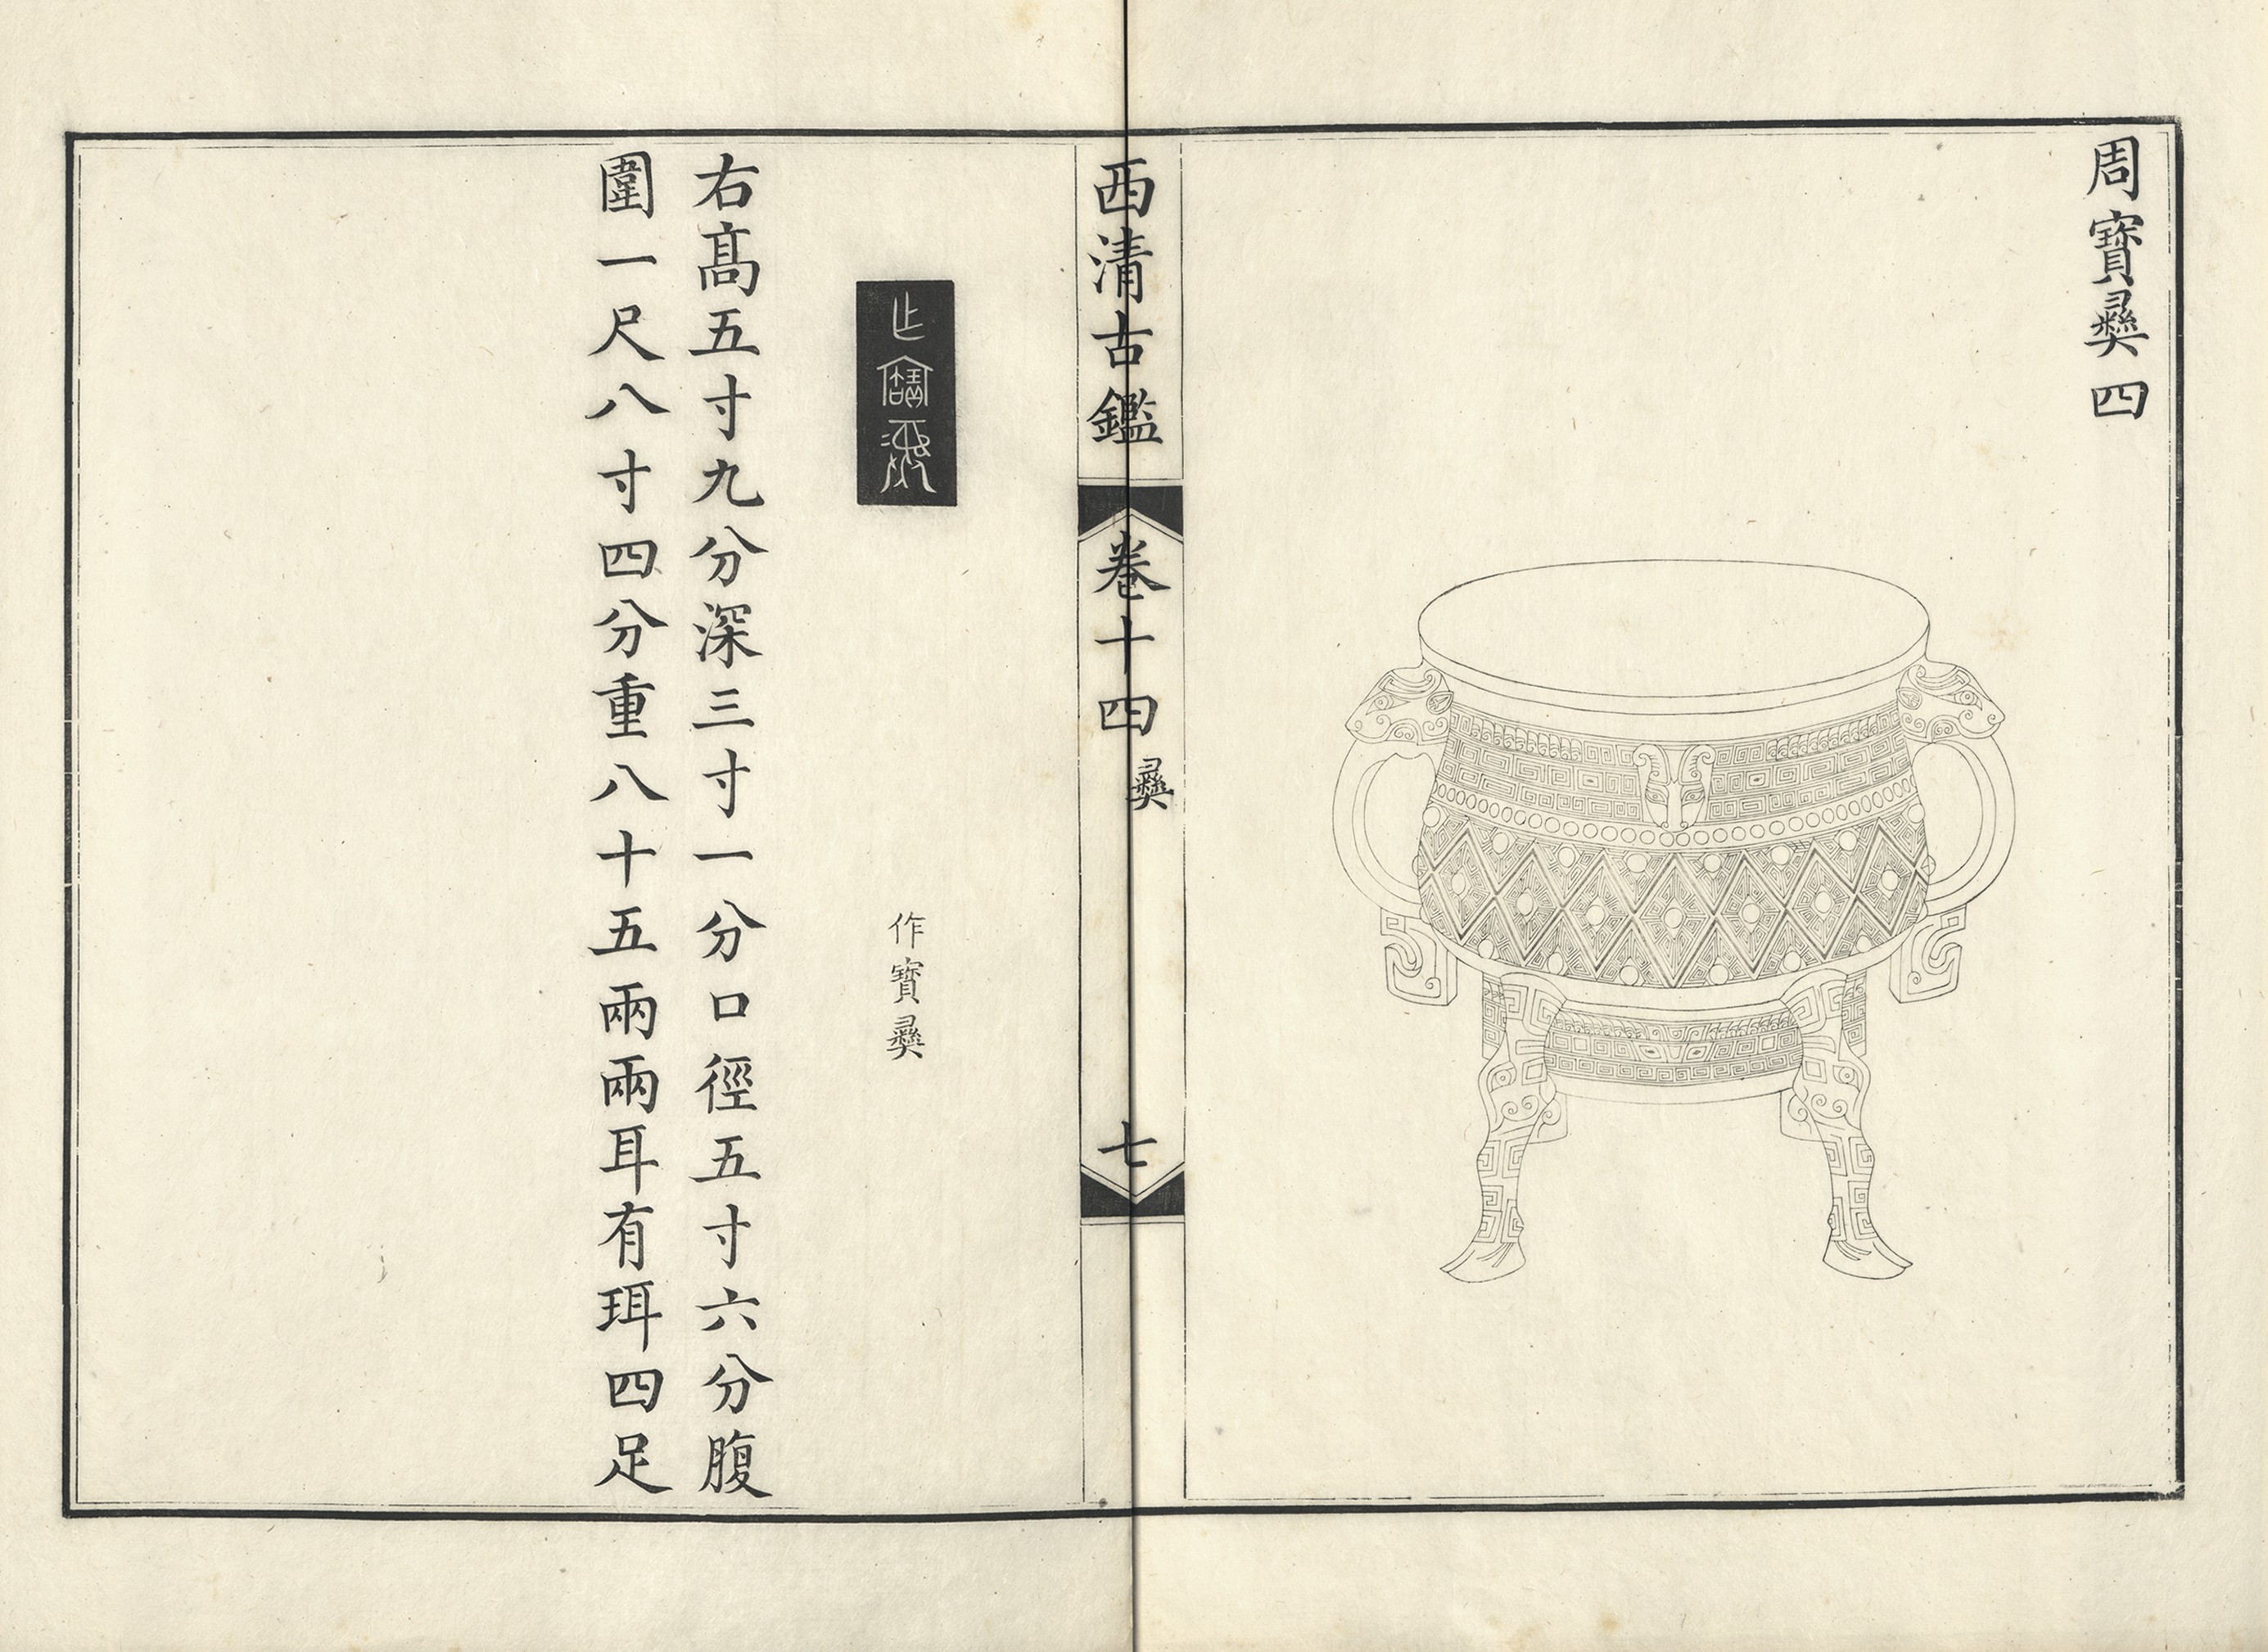 周寶彝四
西清古鑑 卷十四 彝 七
作寶彝
作寶彝
右高五寸九分深三寸一分口徑五寸六分腹
圍一尺八寸四分重八十五兩兩耳有珥四足